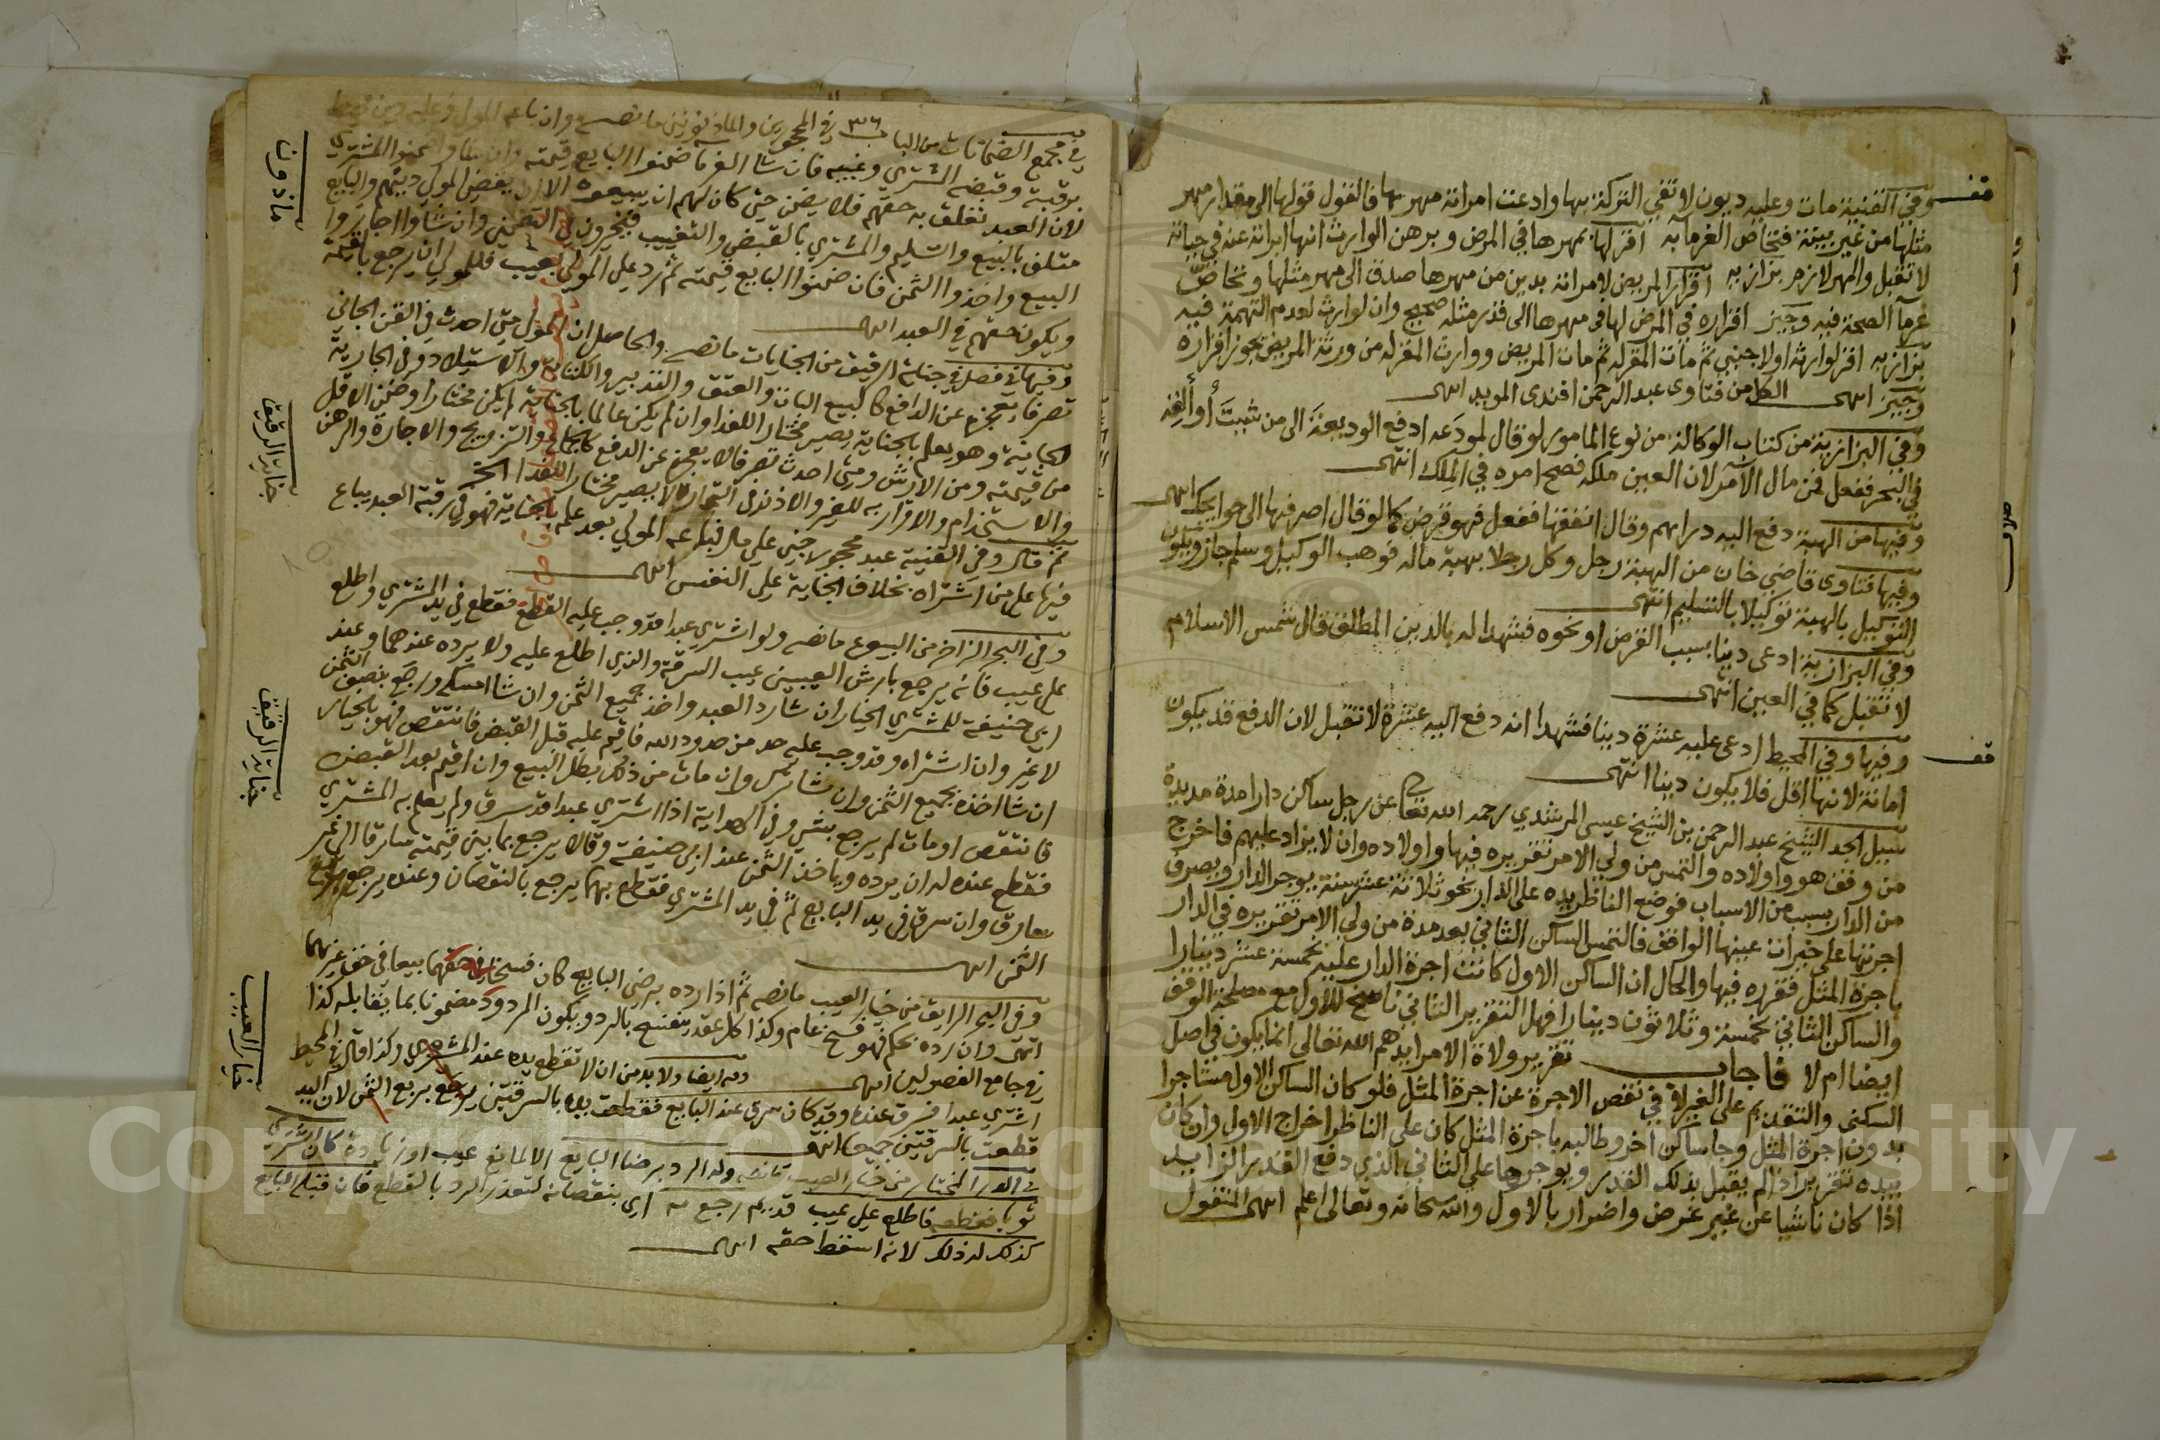 قف
وفي القنية مات وعليه ديون لا تفي التركة بها وادعت امراته مهرها فالقول قولها الى مقدار مهر
مثلها من غير بينة فتحاص الغرما به اقر لها بمهرها في المرض وبرهن الوارث انها ابراته عنه في حياته
لا تقبل والمهر لازم بزازيه اقرار المريض لامراته بدين من مهرها صدق الى مهر مثلها وتحاصّ
غرما الصحة فيه وجيز اقراره في المرض لها في مهرها الى قدر مثله صحيح وان لوارث لعدم التهمة فيه
بزازيه اقر لوارثه او لاجنبي ثم مات المقر له ثم مات المريض ووارث المقر له من ورثة المريض يجوز اقراره
وجيز انتهى الكل من فتاوى عبد الرحمن افندى المويد انتهى
وفي البزازية من كتاب الوكالة من نوع المامور لو قال لمودَعه ادفع الوديعة الى من شيتَ أو ألقِه
في البحر ففعل فمن مال الآمر لان العين ملكه فصح امره في المِلك انتهى
وفيها من الهبة دفع اليه دراهم وقال انفقها ففعل فهو قرض كما لو قال اصرفها الى حوايجك انتهى
وفيها فتاوى قاضي خان من الهبة رجل وكل رجلا بهبة ماله فوهب الوكيل وسلم جاز ويكون
التوكيل بالهبة توكيلا بالتسليم انتهى
وفي البزازية ادعى دينا بسبب القرض او نحوه فشهدا له بالدين المطلق قال شمس الاسلام
لا تقبل كما في العين انتهى
قف
وفيها وفي المحيط ادعى عليه عشرة دينا فشهدا انه دفع اليه عشرة لا تقبل لان الدفع قد يكون
امانة لانها اقل فلا يكون دينا انتهى
سيل الجد الشيخ عبد الرحمن بن الشيخ عيسى المرشدي رحمه الله تعالى عن رجل ساكن دارا مدة مديدة
من وقف هو واولاده والتمس من ولي الامر تقريره فيها واولاده وان لا يزاد عليهم فاخرج
من الدار بسبب من الاسباب فوضع الناظر يده على الدار نحو ثلاثة عشر سنة يوجر الدار ويصرف
اجرتها على خيرات عينها الواقف فالتمس الساكن الثاني بعد مدة من ولي الامر تقريره في الدار
باجرة المثل فقرره فيها والحال ان الساكن الاول كانت اجرة الدار عليه بخمسة عشر دينارا
والساكن الثاني بخمسة وثلاثون دينارا فهل التقرير الثاني ناسخ للاول مع مصلحة الوقف
ايضا ام لا فاجاب تقرير ولاة الامر ايدهم الله تعالى انما يكون في اصل
السكنى والتقديم على الغير لا في نقص الاجرة عن اجرة المثل فلو كان الساكن الاول مستاجرا
بدون اجرة المثل وجا ساكن اخر وطالبه باجرة المثل كان على الناظر اخراج الاول وان كان
بيده تقرير اذا لم يقبل بذلك القدر ويوجرها على الثاني الذي دفع القدر الزايد
اذا كان ناشيا عن غير غرض واضرار بالاول والله سبحانه وتعالى اعلم انتهى المنقول
ماذون
في مجمع الضمانات من الباب ٣٦ في المحجورين والماذونين ما نصه وان باعه المولى وعليه دين محيط
برقبته وقبضه المشتري وغيبه فان شا الغرما ضمنوا البايع قيمته وان شاوا ضمنوا المشتري
لان العبد تعلق به حقهم فلا يضمن حتى كان لهم ان يبيعوه الا ان يقضي المولى دينهم والبايع
متلف بالبيع والتسليم والمشتري بالقبض والتغييب فيخيرون في التضمين وان شاوا اجازوا
البيع واخذوا الثمن فان ضمنوا البايع قيمته ثم رد على المولى بعيب فللمولى ان يرجع بالقيمة
ويكون حقهم في العبد انتهى
جناية الرقيق
وفيها في فصل في جناية الرقيق من الجنايات ما نصه والحاصل ان المولى متى احدث في القن الجاني
تصرفا يعجزه عن الدافع كالبيع البات والعتق والتدبير والكتابة والاستيلاد وفي الجارية
الجانية وهو يعلم بجنايته يصير مختارا للفدا وان لم يكن عالما بالجناية لم يكن مختارا وضمن الاقل
من قيمته ومن الارش ومتى احدث تصرفا لا يعجز عن الدفع كالجماع والتزويج والاجارة والرهن
والاستخدام والاقرار به للغير والاذن في التجارة لا يصير مختارا للفدا الخ
ثم قال وفي القنية عبد محجور جنى على مال فباعه المولى بعد علمه بالجناية فهو في رقبة العبد يباع
فيها على من اشتراه بخلاف الجناية على النفس انتهى
جناية الرقيق
وفي البحر الزاخر من البيوع ما نصه ولو اشترى عبدا قد وجب عليه القطع فقطع في يد المشتري واطلع
على عيب فانه يرجع بارش العيبين عيب السرقة والذي اطلع عليه ولا يرده عندهما وعند
ابي حنيفة للمشتري الخيار ان شا رد العبد واخذ جميع الثمن وان شا امسكه ورجع بنصف الثمن
لا غير وان اشتراه وقد وجب عليه حد من حدود الله فاقيم عليه قبل القبض فانتقص فهو بالخيار
ان شا اخذه بجميع الثمن وان شا ترك وان مات من ذلك بطل البيع وان اقيم بعد القبض
فانتقص او مات لم يرجع بشي وفي الهداية اذا اشترى عبدا قد سرق ولم يعلم به المشتري
فقطع عنده له ان يرده وياخذ الثمن عند ابي حنيفة وقالا يرجع بما بين قيمته سارقا الى غير
سارق وان سرق في يد البايع ثم في يد المشتري فقطع بهما يرجع بالنقصان وعنده يرجع بربع
الثمن انتهى
خيار العيب
وفي البحر الرايق من خيار العيب ما نصه ثم اذا رده برضى البايع كان فسخا في حقهما بيعا في حق غيرهما
انتهى وان رده بحكم فهو فسخ عام وكذا كل عقد ينفسخ بالرد ويكون المردود مضمونا بما يقابله كذا
في جامع الفصولين انتهى وفيه ايضا ولا بد من ان لا تقطع يده عند المشتري وكذا قال في المحيط
اشترى عبدا فسرق عنده وقد كان سرق عند البايع فقطعت يده بالسرقتين يرجع بربع الثمن لان اليد
قطعت بالسرقتين جميعا انتهى
في الدر المختار من خيار العيب ما نصه وله الرد برضا البايع الا لمانع عيب او زيادة كان اشترى
ثوبا فقطعه فاطلع على عيب قديم رجع به اي بنقصانه لتعذر الرد بالقطع فان قبله البايع
كذلك له ذلك لانه اسقط حقه انتهى